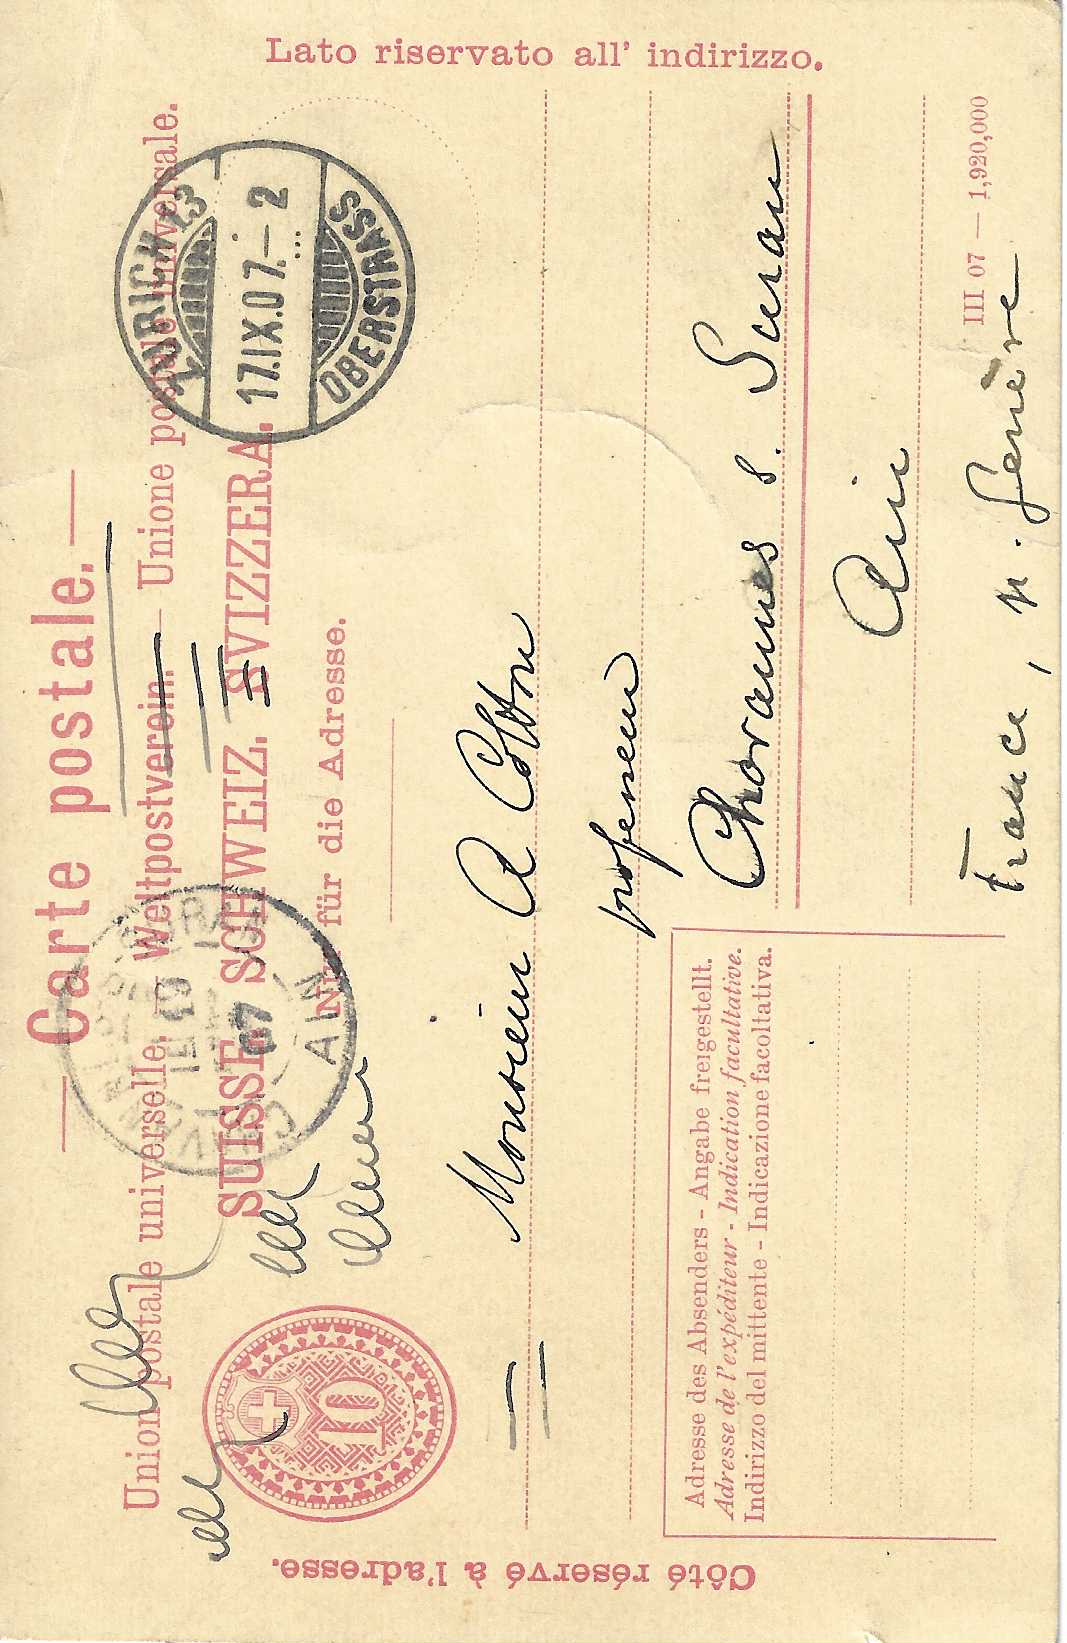 Lato riservato all' indirizzo.
— Carte postale. —
Union postale universelle. — Weltpostverein. — Unione postale universale.
SUISSE. SCHWEIZ. SVIZZERA.
Nur für die Adresse.
Côté réservé à l'adresse.
10
ZÜRICH 13
17.IX.07.–2
OBERSTRASS
07
AIN
Monsieur A Cotton
professeur
Chavannes s. Suran
Ain
France, p. Genève
Adresse des Absenders - Angabe freigestellt.
Adresse de l'expéditeur - Indication facultative.
Indirizzo del mittente - Indicazione facoltativa.
III 07 — 1,920,000